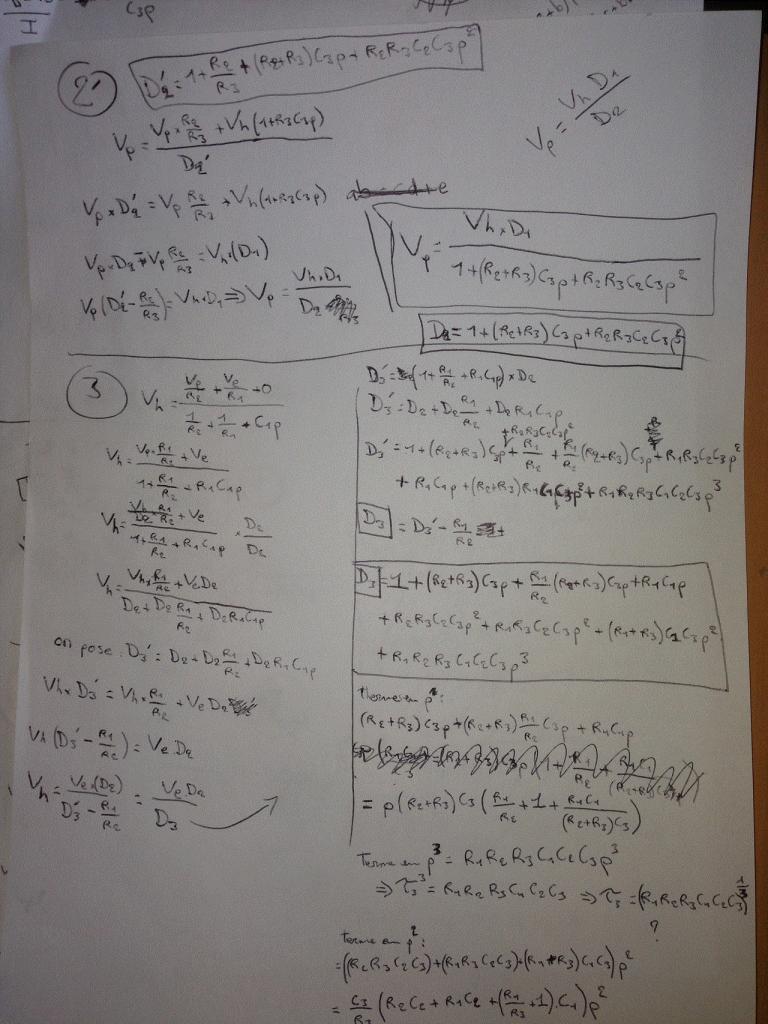 C3p
I
2' D2' = 1 + R2/R3 + (R2+R3)C3p + R2R3C2C3p²
Vp = (Vp × R2/R3 + Vh(1+R3C3p)) / D2'
Vp = Vh D1 / D2
Vp × D2' = Vp R2/R3 + Vh(1+R3C3p)
Vp × D2' - Vp R2/R3 = Vh × (D1)
Vp(D2' - R2/R3) = Vh × D1 ⇒ Vp = Vh × D1 / D2
Vp = Vh × D1 / (1 + (R2+R3)C3p + R2R3C2C3p²)
D2 = 1 + (R2+R3)C3p + R2R3C2C3p²
3 Vh = (Vp/R2 + Ve/R1 + 0) / (1/R2 + 1/R1 + C1p)
Vh = (Vp × R1/R2 + Ve) / (1 + R1/R2 + R1C1p)
Vh = (Vh/D2 × R1/R2 + Ve) / (1 + R1/R2 + R1C1p) × D2/D2
Vh = (Vh × R1/R2 + Ve D2) / (D2 + D2 R1/R2 + D2 R1C1p)
on pose : D3' = D2 + D2 R1/R2 + D2 R1C1p
Vh × D3' = Vh × R1/R2 + Ve D2
Vh (D3' - R1/R2) = Ve D2
Vh = Ve × (D2) / (D3' - R1/R2) = Ve D2 / D3
D3' = (1 + R1/R2 + R1C1p) × D2
D3' = D2 + D2 R1/R2 + D2 R1C1p
+ R2R3C2C3p²
D3' = 1 + (R2+R3)C3p + R1/R2 + R1/R2 (R2+R3)C3p + R1R3C2C3p²
+ R1C1p + (R2+R3)R1C1C3p² + R1R2R3C1C2C3p³
D3 = D3' - R1/R2
D3 = 1 + (R2+R3)C3p + R1/R2 (R2+R3)C3p + R1C1p
+ R2R3C2C3p² + R1R3C2C3p² + (R1+R3)C1C3p²
+ R1R2R3C1C2C3p³
terme en p¹ :
(R2+R3)C3p + (R2+R3) R1/R2 C3p + R1C1p
= p(R2+R3)C3 (R1/R2 + 1 + R1C1/((R2+R3)C3))
Terme en p³ = R1R2R3C1C2C3p³
⇒ τ3³ = R1R2R3C1C2C3 ⇒ τ3 = (R1R2R3C1C2C3)^1/3
?
terme en p² :
= ((R2R3C2C3) + (R1R3C2C3) + (R1+R3)C1C3)p²
= C3/R3 (R2C2 + R1C2 + (R1/R3 + 1).C1)p²